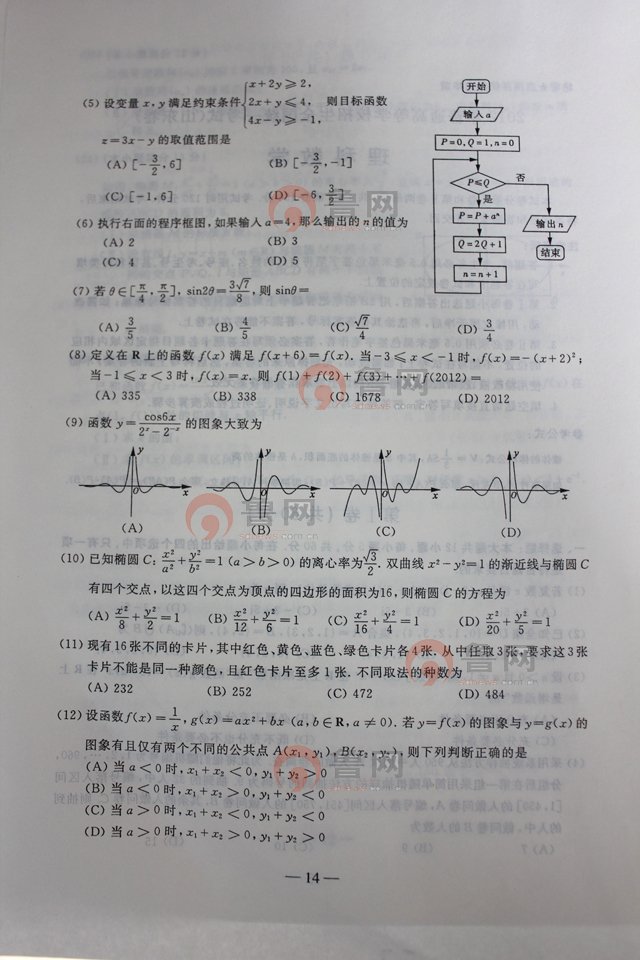 (5) 设变量 x, y 满足约束条件 { x+2y≥2, 2x+y≤4, 4x-y≥-1, 则目标函数
z=3x-y 的取值范围是
(A) [-3/2, 6] (B) [-3/2, -1]
(C) [-1, 6] (D) [-6, 3/2]
(6) 执行右面的程序框图,如果输入 a=4,那么输出的 n 的值为
(A) 2 (B) 3
(C) 4 (D) 5
开始
输入 a
P=0, Q=1, n=0
P≤Q
否
是
P=P+aⁿ
输出 n
Q=2Q+1
结束
n=n+1
(7) 若 θ∈[π/4, π/2], sin2θ=3√7/8, 则 sinθ=
(A) 3/5 (B) 4/5 (C) √7/4 (D) 3/4
(8) 定义在 R 上的函数 f(x) 满足 f(x+6)=f(x). 当 -3≤x<-1 时, f(x)=-(x+2)²;
当 -1≤x<3 时, f(x)=x. 则 f(1)+f(2)+f(3)+…+f(2012)=
(A) 335 (B) 338 (C) 1678 (D) 2012
(9) 函数 y=cos6x/(2ˣ-2⁻ˣ) 的图象大致为
y y y y
O x O x O x O x
(A) (B) (C) (D)
(10) 已知椭圆 C: x²/a²+y²/b²=1 (a>b>0) 的离心率为 √3/2. 双曲线 x²-y²=1 的渐近线与椭圆 C
有四个交点,以这四个交点为顶点的四边形的面积为16,则椭圆 C 的方程为
(A) x²/8+y²/2=1 (B) x²/12+y²/6=1 (C) x²/16+y²/4=1 (D) x²/20+y²/5=1
(11) 现有16张不同的卡片,其中红色、黄色、蓝色、绿色卡片各4张. 从中任取3张,要求这3张
卡片不能是同一种颜色,且红色卡片至多1张. 不同取法的种数为
(A) 232 (B) 252 (C) 472 (D) 484
(12) 设函数 f(x)=1/x, g(x)=ax²+bx (a,b∈R, a≠0). 若 y=f(x) 的图象与 y=g(x) 的
图象有且仅有两个不同的公共点 A(x₁,y₁), B(x₂,y₂), 则下列判断正确的是
(A) 当 a<0 时, x₁+x₂<0, y₁+y₂>0
(B) 当 a<0 时, x₁+x₂>0, y₁+y₂<0
(C) 当 a>0 时, x₁+x₂<0, y₁+y₂<0
(D) 当 a>0 时, x₁+x₂>0, y₁+y₂>0
— 14 —
鲁网
鲁网
鲁网
鲁网
鲁网